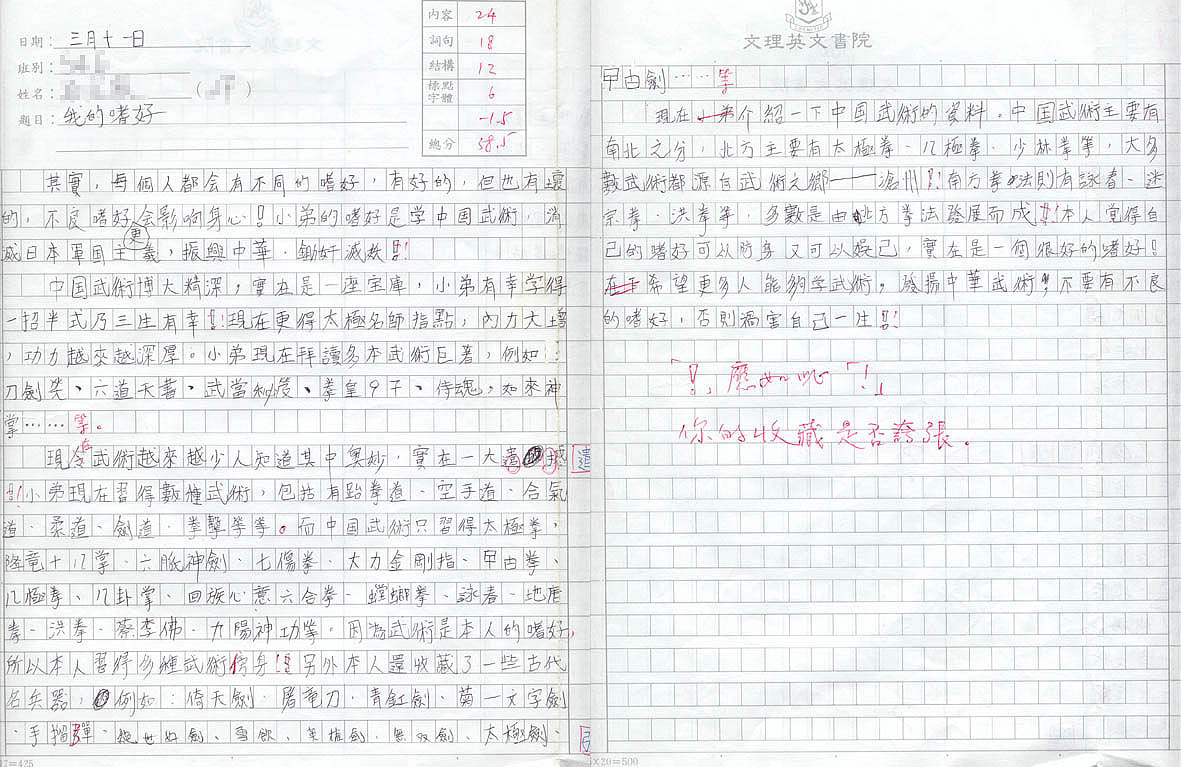 日期：三月十一日
班別：
姓名： ( )
題目：我的嗜好
內容 24
詞句 18
結構 12
標點字體 6
-1.5
總分 58.5
其實，每個人都会有不同的嗜好，有好的，但也有壞
的，不良嗜好会影响身心！小弟的嗜好是学中国武術，消
滅日本軍国主義，振興中華．鋤奸滅敵！
中国武術博大精深，實在是一座宝庫，小弟有幸学得
一招半式乃三生有幸！現在更得太極名師指點，內力大增
，功力越來越深厚。小弟現在拜讀多本武術巨著，例如：
刀劍笑、六道天書、武當秘笈、拳皇97、侍魂，如來神
掌……等。
現今武術越來越少人知道其中奧妙，實在一大遺憾 遺
！小弟現在習得數種武術，包括有跆拳道、空手道、合氣
道、柔道、劍道．拳擊拳等。而中国武術只習得太極拳，
降竜十八掌、六脈神劍、七傷拳、大力金剛指、甲古拳、
八極拳、八卦掌、回族心意六合拳、螳螂拳、詠春、地唐
拳、洪拳、蔡李佛、九陽神功拳。因為武術是本人的嗜好，
所以本人習得多種武術傍身！另外本人還收藏了一些古代
石兵器，例如：倚天劍．屠竜刀．青釭劍、菊一文字劍
、手榴彈、絕世好劍、雪飲、無双劍、太極劍、
17=425
文理英文書院
甲古劍……等
現在小弟介紹一下中国武術的資料。中国武術主要有
南北之分，北方主要有太極拳、八極拳．少林拳等，大多
數武術都源自武術之鄉——滄州！南方拳法則有詠春、迷
宗拳．洪拳等，多數是由北方拳法發展而成！本人覚得自
己的嗜好可以防身又可以娛己，實在是一個很好的嗜好！
在于希望更多人能夠学武術，發揚中華武術，不要有不良
的嗜好，否則禍害自己一生！
「！，應如此「！」
你的收藏是否誇張。
5X20=500